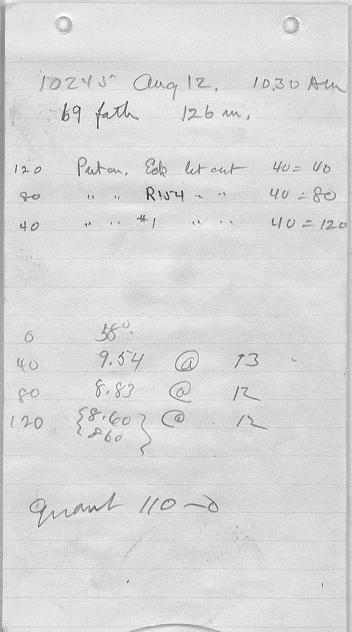 10245 Aug 12. 10.30 AM
69 fath 126 m.
120 Put on, Eck let out 40 = 40
80 " " R154 " " 40 = 80
40 " " #1 " " 40 = 120
0 58°
40 9.54 @ 13
80 8.83 @ 12
120 {8.60 } @ 12
{860 }
Quant 110-0